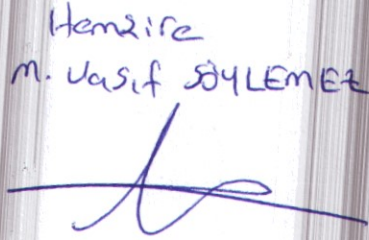 Hemşire
M. Vasıf SÖYLEMEZ